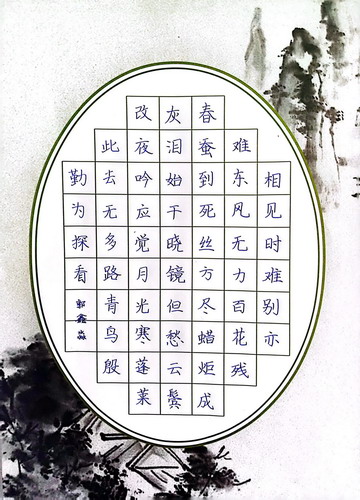 相见时难别亦
难东风无力百花残
春蚕到死丝方尽蜡炬成
灰泪始干晓镜但愁云鬓
改夜吟应觉月光寒蓬莱
此去无多路青鸟殷
勤为探看
郭鑫淼